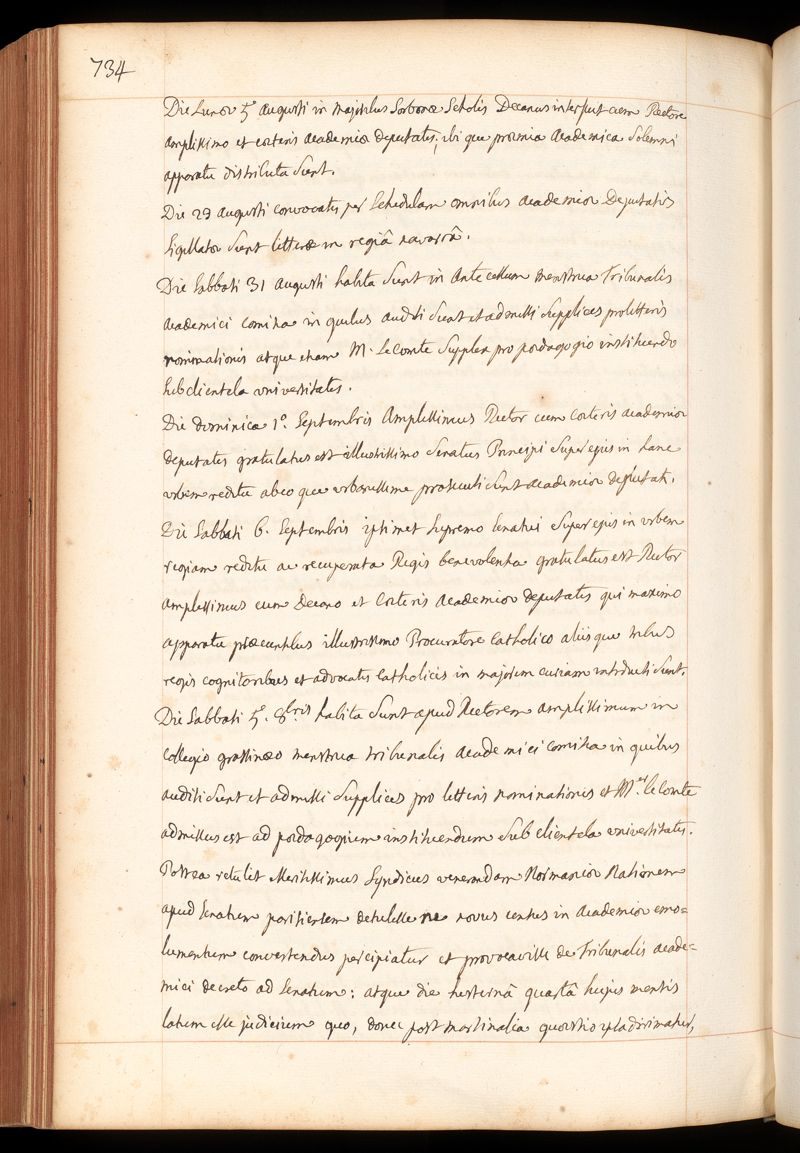 734
Die Lunæ 5ª augusti in majoribus Sorbonæ Scholis Decanus interfuit cum Rectore
amplissimo et cæteris academiæ deputatis, ibi que præmia academica solemni
apparatu distributa sunt.
Die 29 augusti convocatis per schedulam omnibus academiæ Deputatis
sigillatæ sunt litteræ in regiâ navarrâ.
Die Sabbati 31 augusti habita sunt in Antecellum menstrua Tribunalis
academici comitia in quibus auditi sunt et admissi supplices pro litteris
nominationis atque etiam M. Le Comte supplex pro pædagogio instituendo
sub clientela universitatis.
Die dominica 1º. Septembris Amplissimus Rector cum cæteris academiæ
deputatis gratulatus est illustrissimo senatus Principi super ejus in hanc
urbem reditu ab eo que urbanissime prosecuti sunt academiæ deputati.
Die Sabbati 6. Septembris ipsimet supremo senatui super ejus in urbem
regiam reditu ac recuperata Regis benevolentia gratulatus est Rector
amplissimus cum Decano et cæteris academiæ deputatis qui maximo
apparatu præeuntibus illustrissimo Procuratore catholico aliisque tribus
regis cognitoribus et advocatis catholicis in majorem curiam introducti sunt.
Die Sabbati 5ª. 8bris habita sunt apud Rectorem amplissimum in
collegio grassinæo menstrua tribunalis academici comitia in quibus
auditi sunt et admissi supplices pro litteris nominationis et Mer le Comte
admissus est ad pædagogium instituendum sub clientela universitatis.
Postea retulit meritissimus syndicus venerandam Normaniæ Nationem
apud senatum parisiensem detulisse ne novus census in academiæ emo=
lumentum convertendus percipiatur et provocavisse de Tribunalis acade=
mici decreto ad senatum: atque die hesternâ quartâ hujus mensis
latum esse judicium quo, donec post martinalia quæstio ipsa dirimatur,